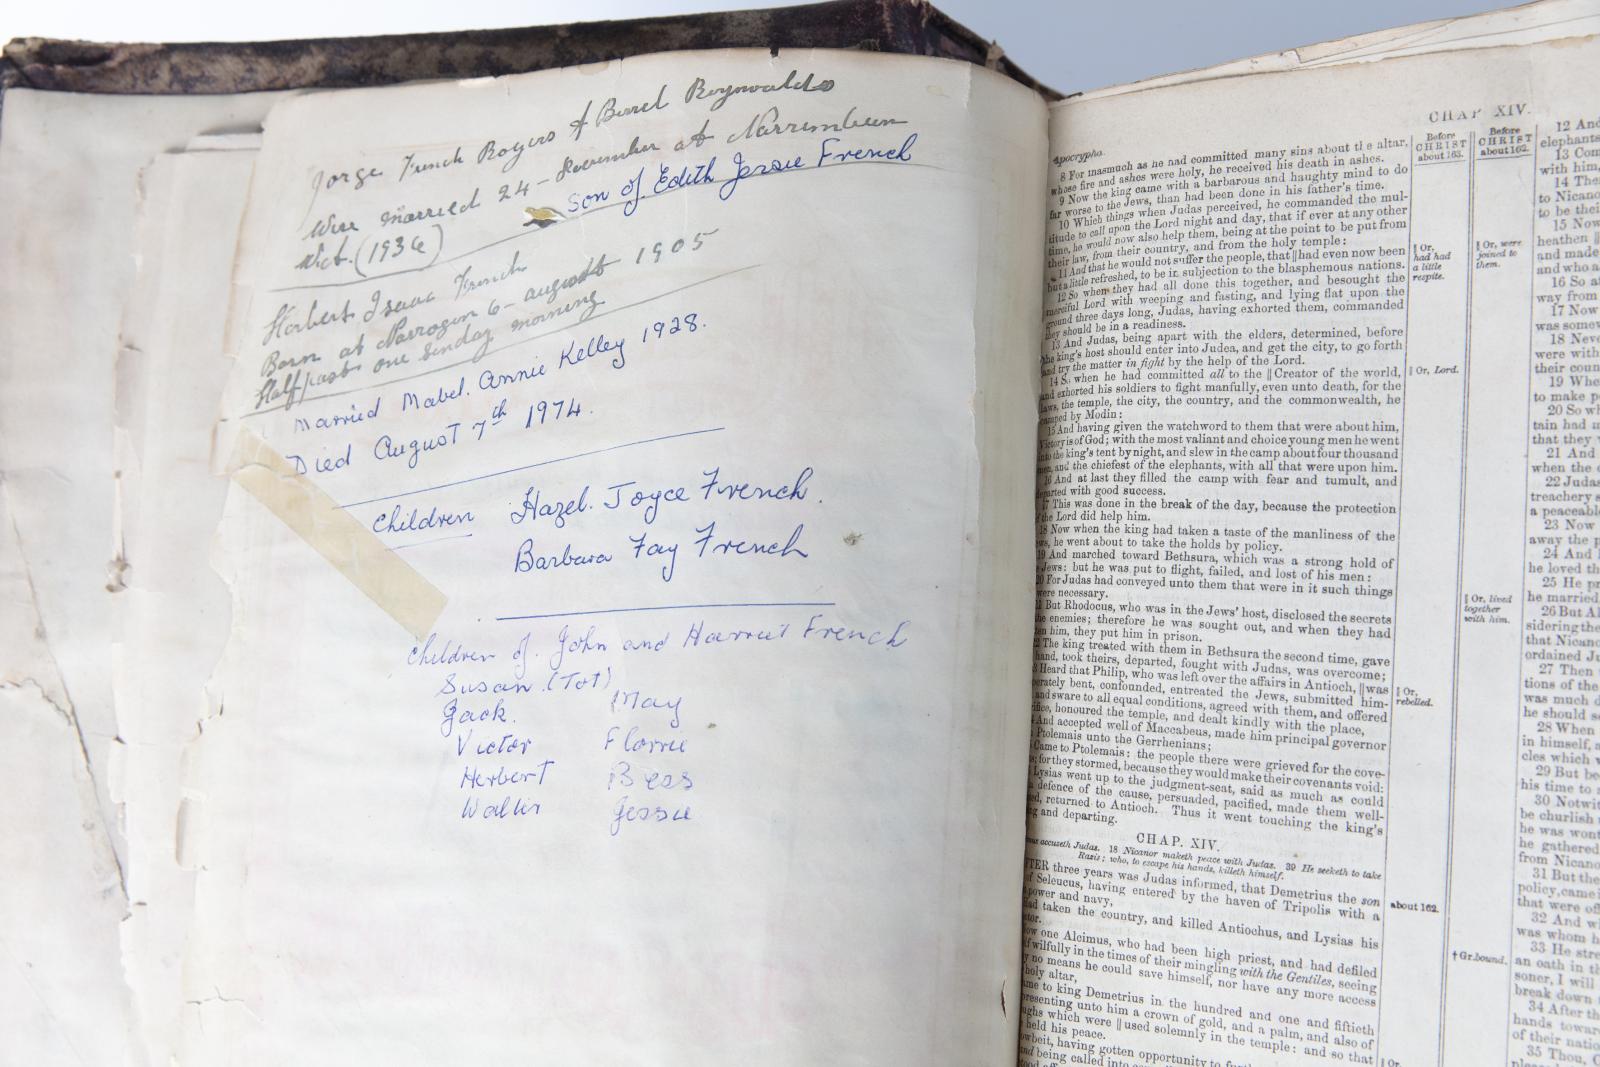 Jorge French Rogers & Berrel Reynwalds
Were married 24 - November at Narrembeen
W.A. (1936)
Son of Edith Jessie French
Herbert Isaac French
Born at Parragon 6 - august 1905
Half/past one Sunday morning
Married Mabel. Annie Kelley 1928.
Died August 7th 1974.
Children Hazel. Joyce French.
Barbara Fay French
Children of. John and Harriet French
Susan. (Tot)
Jack. May
Victor Florrie
Herbert Bess
Walter Jessie
CHAP XIV.
Apocrypha.
Before CHRIST about 163.
Before CHRIST about 162.
8 For inasmuch as he had committed many sins about the altar,
whose fire and ashes were holy, he received his death in ashes.
9 Now the king came with a barbarous and haughty mind to do
far worse to the Jews, than had been done in his father's time.
10 Which things when Judas perceived, he commanded the mul-
titude to call upon the Lord night and day, that if ever at any other
time, he would now also help them, being at the point to be put from
their law, from their country, and from the holy temple:
11 And that he would not suffer the people, that ‖ had even now been
but a little refreshed, to be in subjection to the blasphemous nations.
12 So when they had all done this together, and besought the
merciful Lord with weeping and fasting, and lying flat upon the
ground three days long, Judas, having exhorted them, commanded
they should be in a readiness.
13 And Judas, being apart with the elders, determined, before
the king's host should enter into Judea, and get the city, to go forth
and try the matter in fight by the help of the Lord.
14 So when he had committed all to the ‖ Creator of the world,
and exhorted his soldiers to fight manfully, even unto death, for the
laws, the temple, the city, the country, and the commonwealth, he
camped by Modin:
15 And having given the watchword to them that were about him,
Victory is of God; with the most valiant and choice young men he went
into the king's tent by night, and slew in the camp about four thousand
men, and the chiefest of the elephants, with all that were upon him.
16 And at last they filled the camp with fear and tumult, and
departed with good success.
17 This was done in the break of the day, because the protection
of the Lord did help him.
18 Now when the king had taken a taste of the manliness of the
Jews, he went about to take the holds by policy.
19 And marched toward Bethsura, which was a strong hold of
e Jews: but he was put to flight, failed, and lost of his men:
20 For Judas had conveyed unto them that were in it such things
were necessary.
21 But Rhodocus, who was in the Jews' host, disclosed the secrets
the enemies; therefore he was sought out, and when they had
ten him, they put him in prison.
The king treated with them in Bethsura the second time, gave
hand, took theirs, departed, fought with Judas, was overcome;
Heard that Philip, who was left over the affairs in Antioch, ‖ was
perately bent, confounded, entreated the Jews, submitted him-
and sware to all equal conditions, agreed with them, and offered
rifice, honoured the temple, and dealt kindly with the place,
And accepted well of Maccabeus, made him principal governor
Ptolemais unto the Gerrhenians;
Came to Ptolemais: the people there were grieved for the cove-
s; for they stormed, because they would make their covenants void:
Lysias went up to the judgment-seat, said as much as could
defence of the cause, persuaded, pacified, made them well-
ed, returned to Antioch. Thus it went touching the king's
g and departing.
CHAP. XIV.
mus accuseth Judas. 18 Nicanor maketh peace with Judas. 39 He seeketh to take
Rasis; who, to escape his hands, killeth himself.
TER three years was Judas informed, that Demetrius the son
of Seleucus, having entered by the haven of Tripolis with a
power and navy,
ad taken the country, and killed Antiochus, and Lysias his
tor.
ow one Alcimus, who had been high priest, and had defiled
lf wilfully in the times of their mingling with the Gentiles, seeing
y no means he could save himself, nor have any more access
holy altar,
ame to king Demetrius in the hundred and one and fiftieth
presenting unto him a crown of gold, and a palm, and also of
ughs which were ‖ used solemnly in the temple: and so that
held his peace.
owbeit, having gotten opportunity to
and being called into
‖ Or, had had a little respite.
‖ Or, Lord.
‖ Or, rebelled.
about 162.
‖ Or,
‖ Or, were joined to them.
‖ Or, lived together with him.
† Gr. bound.
12 And
elephants
13 Com
with him,
14 The
to Nicano
to be thei
15 Now
heathen
and made
and who a
16 So at
way from
17 Now
was somew
18 Neve
were with
their coun
19 Whe
to make p
20 So wh
tain had m
that they
21 And
when the
22 Judas
treachery s
a peaceable
23 Now
away the p
24 And
he loved th
25 He pr
he married,
26 But Al
sidering the
that Nicano
ordained Ju
27 Then
tions of the
was much d
he should se
28 When
in himself, a
cles which w
29 But be
his time to
30 Notwit
be churlish
he was wont
he gathered
from Nicano
31 But the
policy, came i
that were of
32 And wi
was whom h
33 He stre
an oath in th
soner, I will
break down
34 After th
hands towar
of their natio
35 Thou,